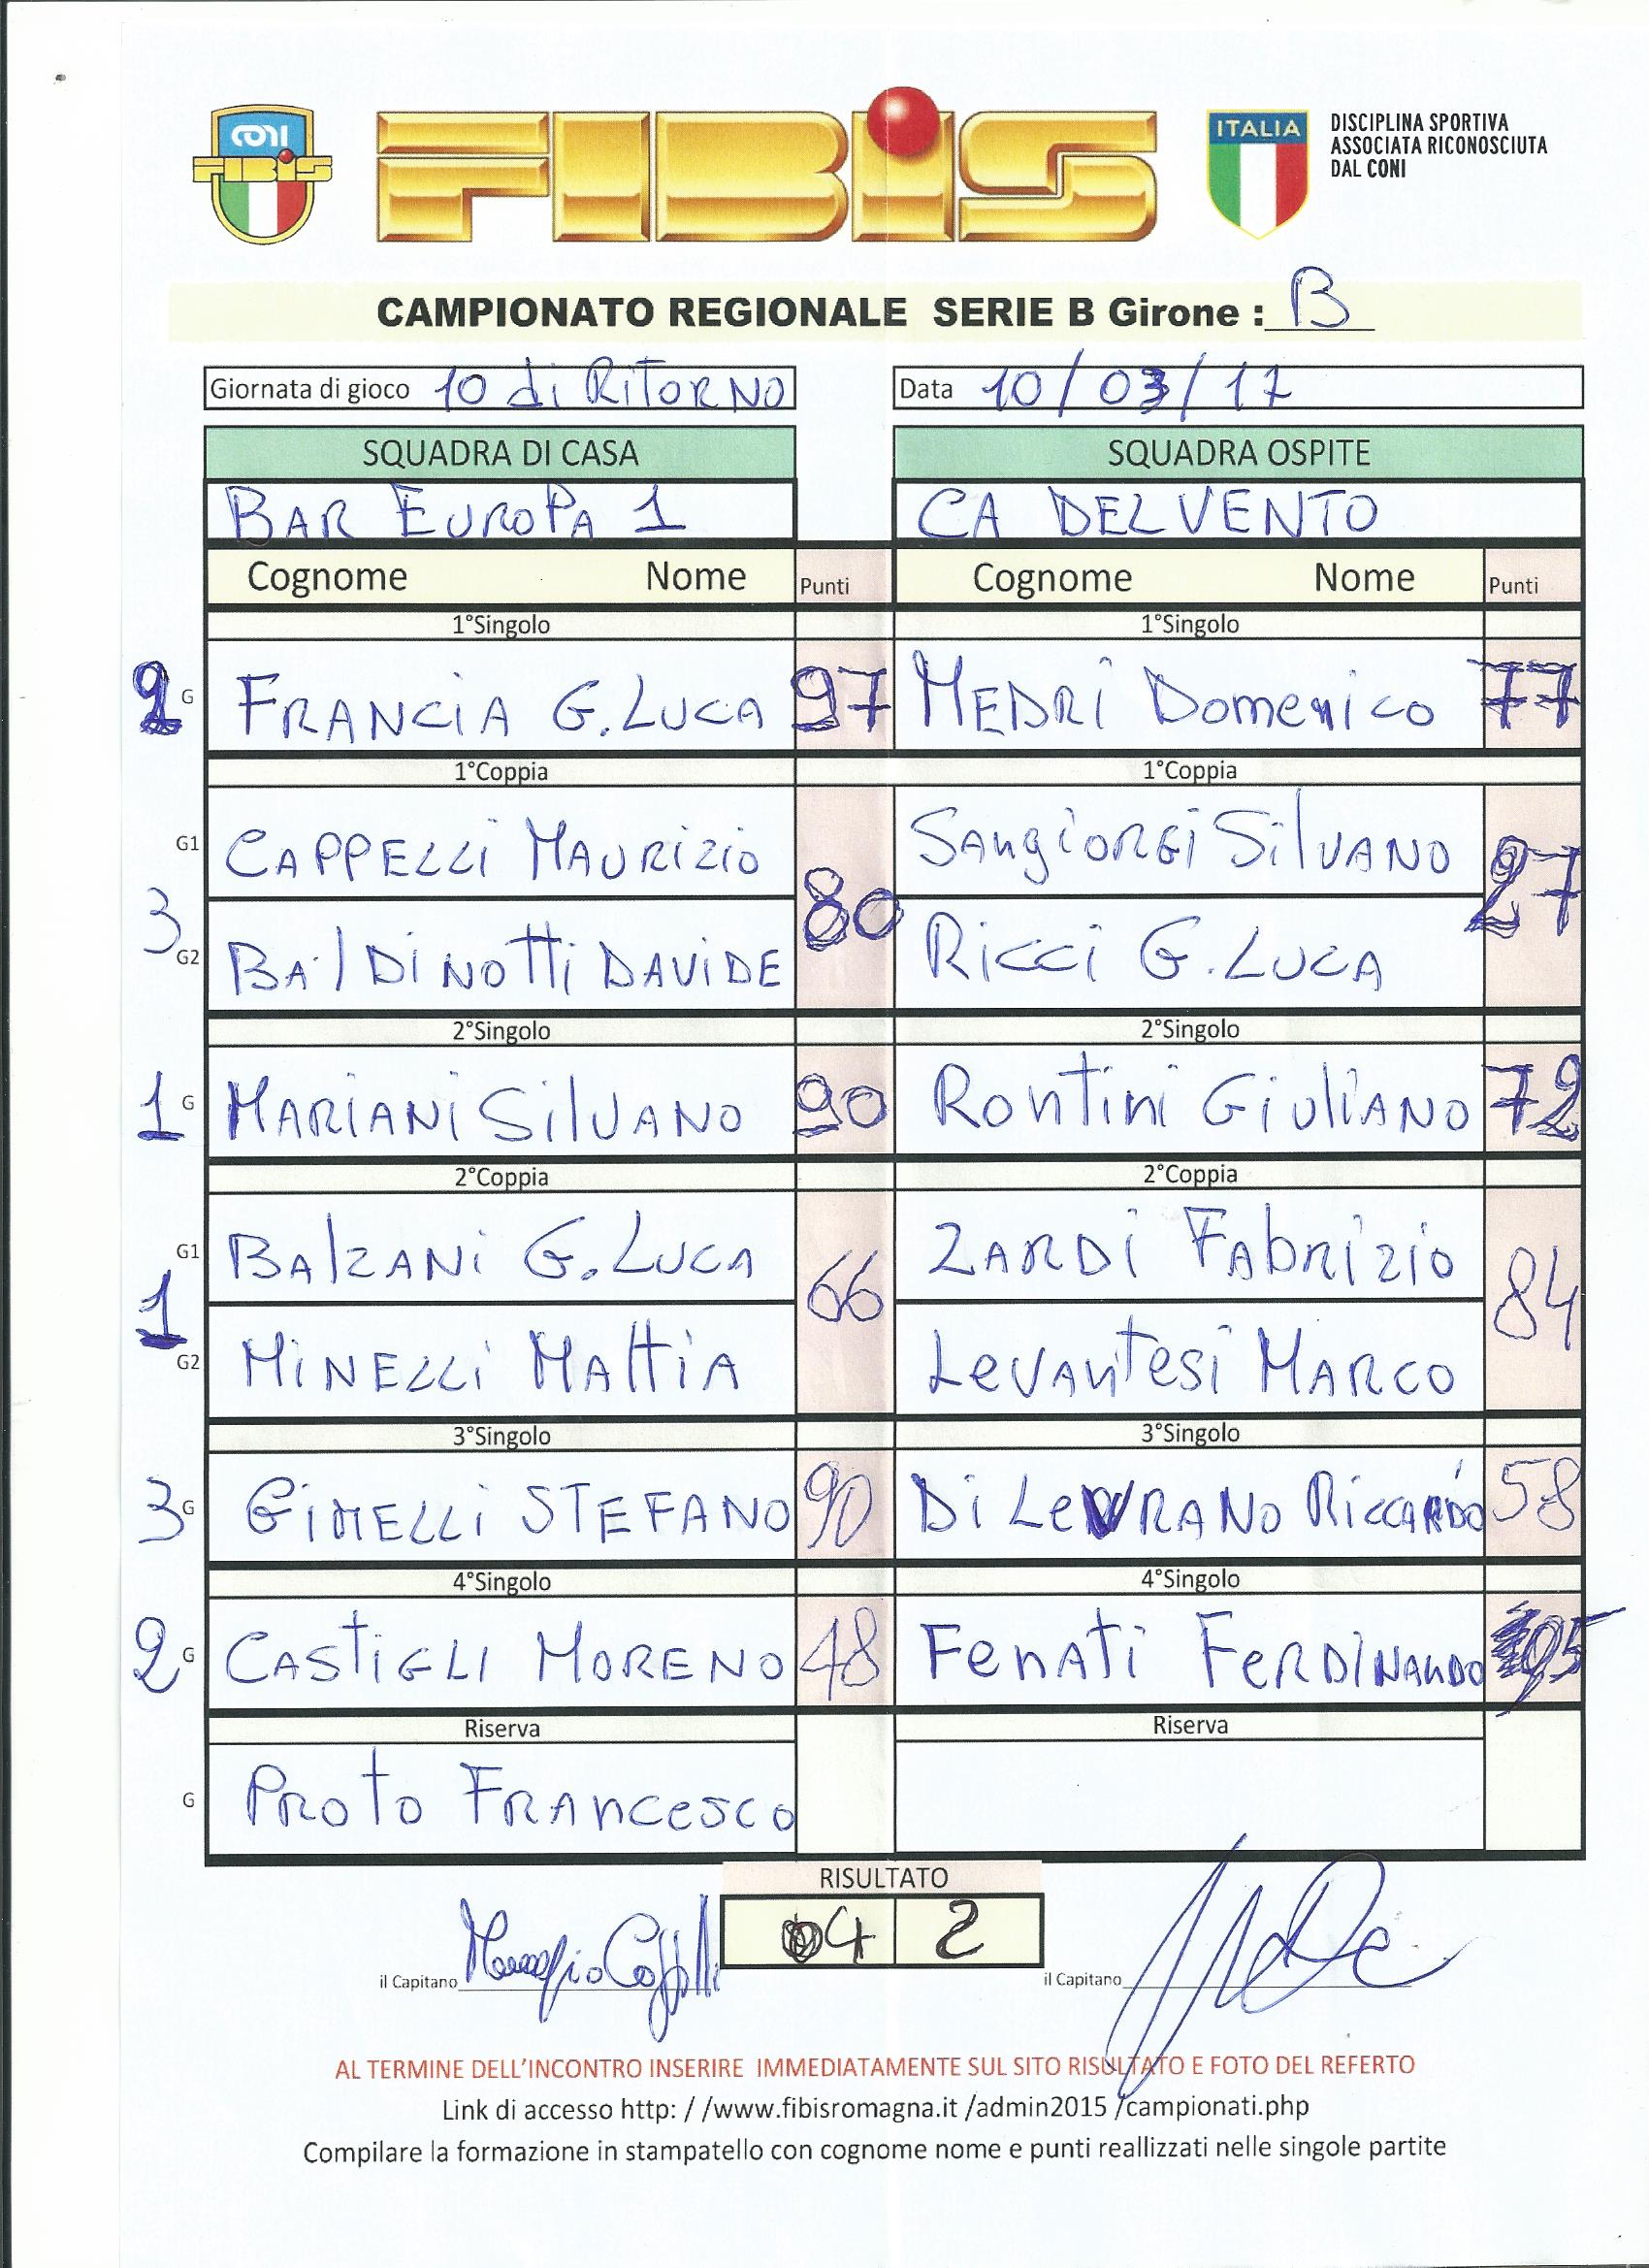 CONI
FIBIS
FIBIS
ITALIA
DISCIPLINA SPORTIVA
ASSOCIATA RICONOSCIUTA
DAL CONI
CAMPIONATO REGIONALE SERIE B Girone : B
Giornata di gioco 10 di RITORNO
Data 10/03/17
SQUADRA DI CASA SQUADRA OSPITE
BAR EUROPA 1 CA DEL VENTO
Cognome Nome Punti Cognome Nome Punti
1°Singolo 1°Singolo
2 G FRANCIA G.LUCA 97 MEDRI Domenico 77
1°Coppia 1°Coppia
G1 CAPPELLI MAURIZIO SANgiORGI SilVANO
3 80 27
G2 BAlDINOTTI DAVIDE RICCI G.LUCA
2°Singolo 2°Singolo
1 G MARIANI SilVANO 90 RONTINI GIULIANO 72
2°Coppia 2°Coppia
G1 BAlZANI G.LUCA ZARDI FAbRIZIO
1 66 84
G2 MINELLI MATTIA LEVANTESI MARCO
3°Singolo 3°Singolo
3 G GIMELLI STEFANO 90 Di LeVRANO RICCARDO 58
4°Singolo 4°Singolo
2 G CASTIGLI MORENO 48 FeNATI FERDINANDO 95
Riserva Riserva
G PROTO FRANCESCO
RISULTATO
4 2
il Capitano il Capitano
AL TERMINE DELL'INCONTRO INSERIRE IMMEDIATAMENTE SUL SITO RISULTATO E FOTO DEL REFERTO
Link di accesso http: / /www.fibisromagna.it /admin2015 /campionati.php
Compilare la formazione in stampatello con cognome nome e punti reallizzati nelle singole partite